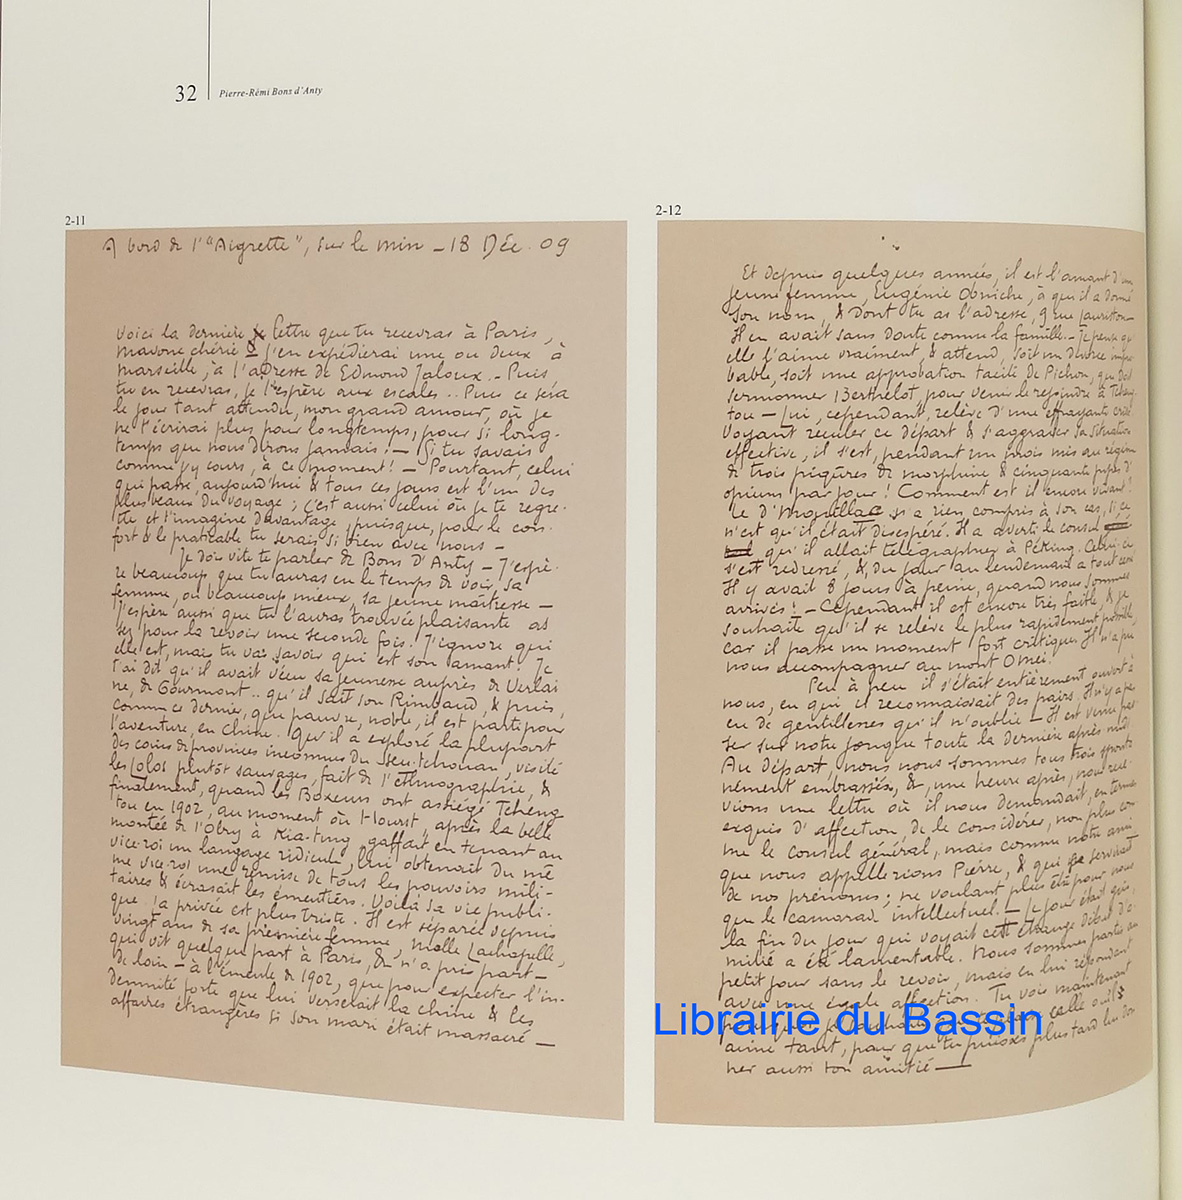 32
Pierre-Rémi Bons d'Anty
2-11
A bord de l'"Aigrette", sur le min – 18 Déc. 09
Voici la dernière lettre que tu recevras à Paris,
mavone chérie & j'en expédierai une ou deux à
marseille, à l'adresse de Edmond Jaloux. – Puis
tu en recevras, je l'espère aux escales.. Puis ce sera
le jour tant attendu, mon grand amour, où je
ne t'écrirai plus pour longtemps, pour si long-
temps que nous dirons jamais ! – Si tu savais
comme j'y cours, à ce moment ! – Pourtant, celui
qui passe aujourd'hui & tous ces jours est l'un des
plus beaux du voyage ; c'est aussi celui où je te regre-
tte et t'imagine davantage, puisque, pour le con-
fort & le praticable tu serais si bien avec nous –
Je dois vite te parler de Bons d'Anty – J'espè-
re beaucoup que tu auras eu le temps de voir sa
femme, ou beaucoup mieux, sa jeune maîtresse –
J'espère aussi que tu l'auras trouvée plaisante as
sez pour la revoir une seconde fois. J'ignore qui
elle est, mais tu vas savoir qui est son amant. Je
t'ai dit qu'il avait vécu sa jeunesse auprès de Verlai
ne, de Gourmont .. qu'il sait son Rimbaud, & puis,
comme ce dernier, que pauvre, noble, il est parti pour
l'aventure, en Chine. Qu'il a exploré la plupart
des coins de provinces inconnus du Sseu-tchouan, visité
les Lolos plutôt sauvages, fait de l'ethnographie, &
finalement, quand les Boxeurs ont assiégé Tcheng
tou en 1902, au moment où Hourst, après la belle
montée de l'Olry à Kia-ting, gaffait en tenant au
vice-roi un langage ridicule, lui obtenait du mê
me vice-roi une remise de tous les pouvoirs mili-
taires & écrasait les émeutiers. Voilà sa vie publi-
que. Sa privée est plus triste. Il est séparé depuis
vingt ans de sa première femme, melle Lachapelle,
qui vit quelque part à Paris, & n'a pris part –
de loin – à l'émeute de 1902, que pour expecter l'in-
demnité forte que lui verserait la chine & les
affaires étrangères si son mari était massacré –
2-12
Et depuis quelques années, il est l'amant d'une
jeune femme, Eugénie Obniche, à qui il a donné
son nom, & dont tu as l'adresse, 9 rue Lauriston –
Il en avait sans doute connu la famille. – Je pense qu'
elle l'aime vraiment, & attend, soit un divorce impro
bable, soit une approbation tacite de Pichon, que doit
sermonner Berthelot, pour venir le rejoindre à Tcheng-
tou – Lui, cependant, relève d'une effrayante crise
voyant reculer ce départ & s'aggraver sa situation
effective, il s'est, pendant un mois mis au régime
de trois piqûres de morphine & cinquante pipes d'
opium par jour ! Comment est il encore vivant ?
Le d'Mouillac n'a rien compris à son cas, si ce
n'est qu'il était désespéré. Il a averti le consul
qu'il allait télégraphier à Péking. Celui-ci
s'est redressé, &, du jour au lendemain a tout cessé
Il y avait 8 jours à peine, quand nous sommes
arrivés ! – Cependant il est encore très faible, & je
souhaite qu'il se relève le plus rapidement possible,
car il passe un moment fort critique. Il n'a pu
nous accompagner au mont Omei.
Peu à peu il s'était entièrement ouvert à
nous, en qui il reconnaissait des pairs. Il n'y a pas
eu de gentillesses qu'il n'oublie – Il est venu pas
ser sur notre jonque toute la dernière après midi
Au départ, nous nous sommes tous trois sponta
nément embrassés, &, une heure après, nous rece-
vions une lettre où il nous demandait, en termes
exquis d'affection, de le considérer, non plus com-
me le consul général, mais comme notre ami
que nous appellerions Pierre, & qui se servirait
de nos prénoms ; ne voulant plus être pour nous
que le camarade intellectuel. – Le jour était gris,
la fin du jour qui voyait cette étrange début d'a-
mitié a été lamentable. Nous sommes partis au
petit jour sans le revoir, mais en lui répondant
avec une égale affection. Tu vois maintenant
pourquoi je souhaite celle qu'il
aime tant, pour que tu puisses plus tard lui don
ner aussi ton amitié –
Librairie du Bassin